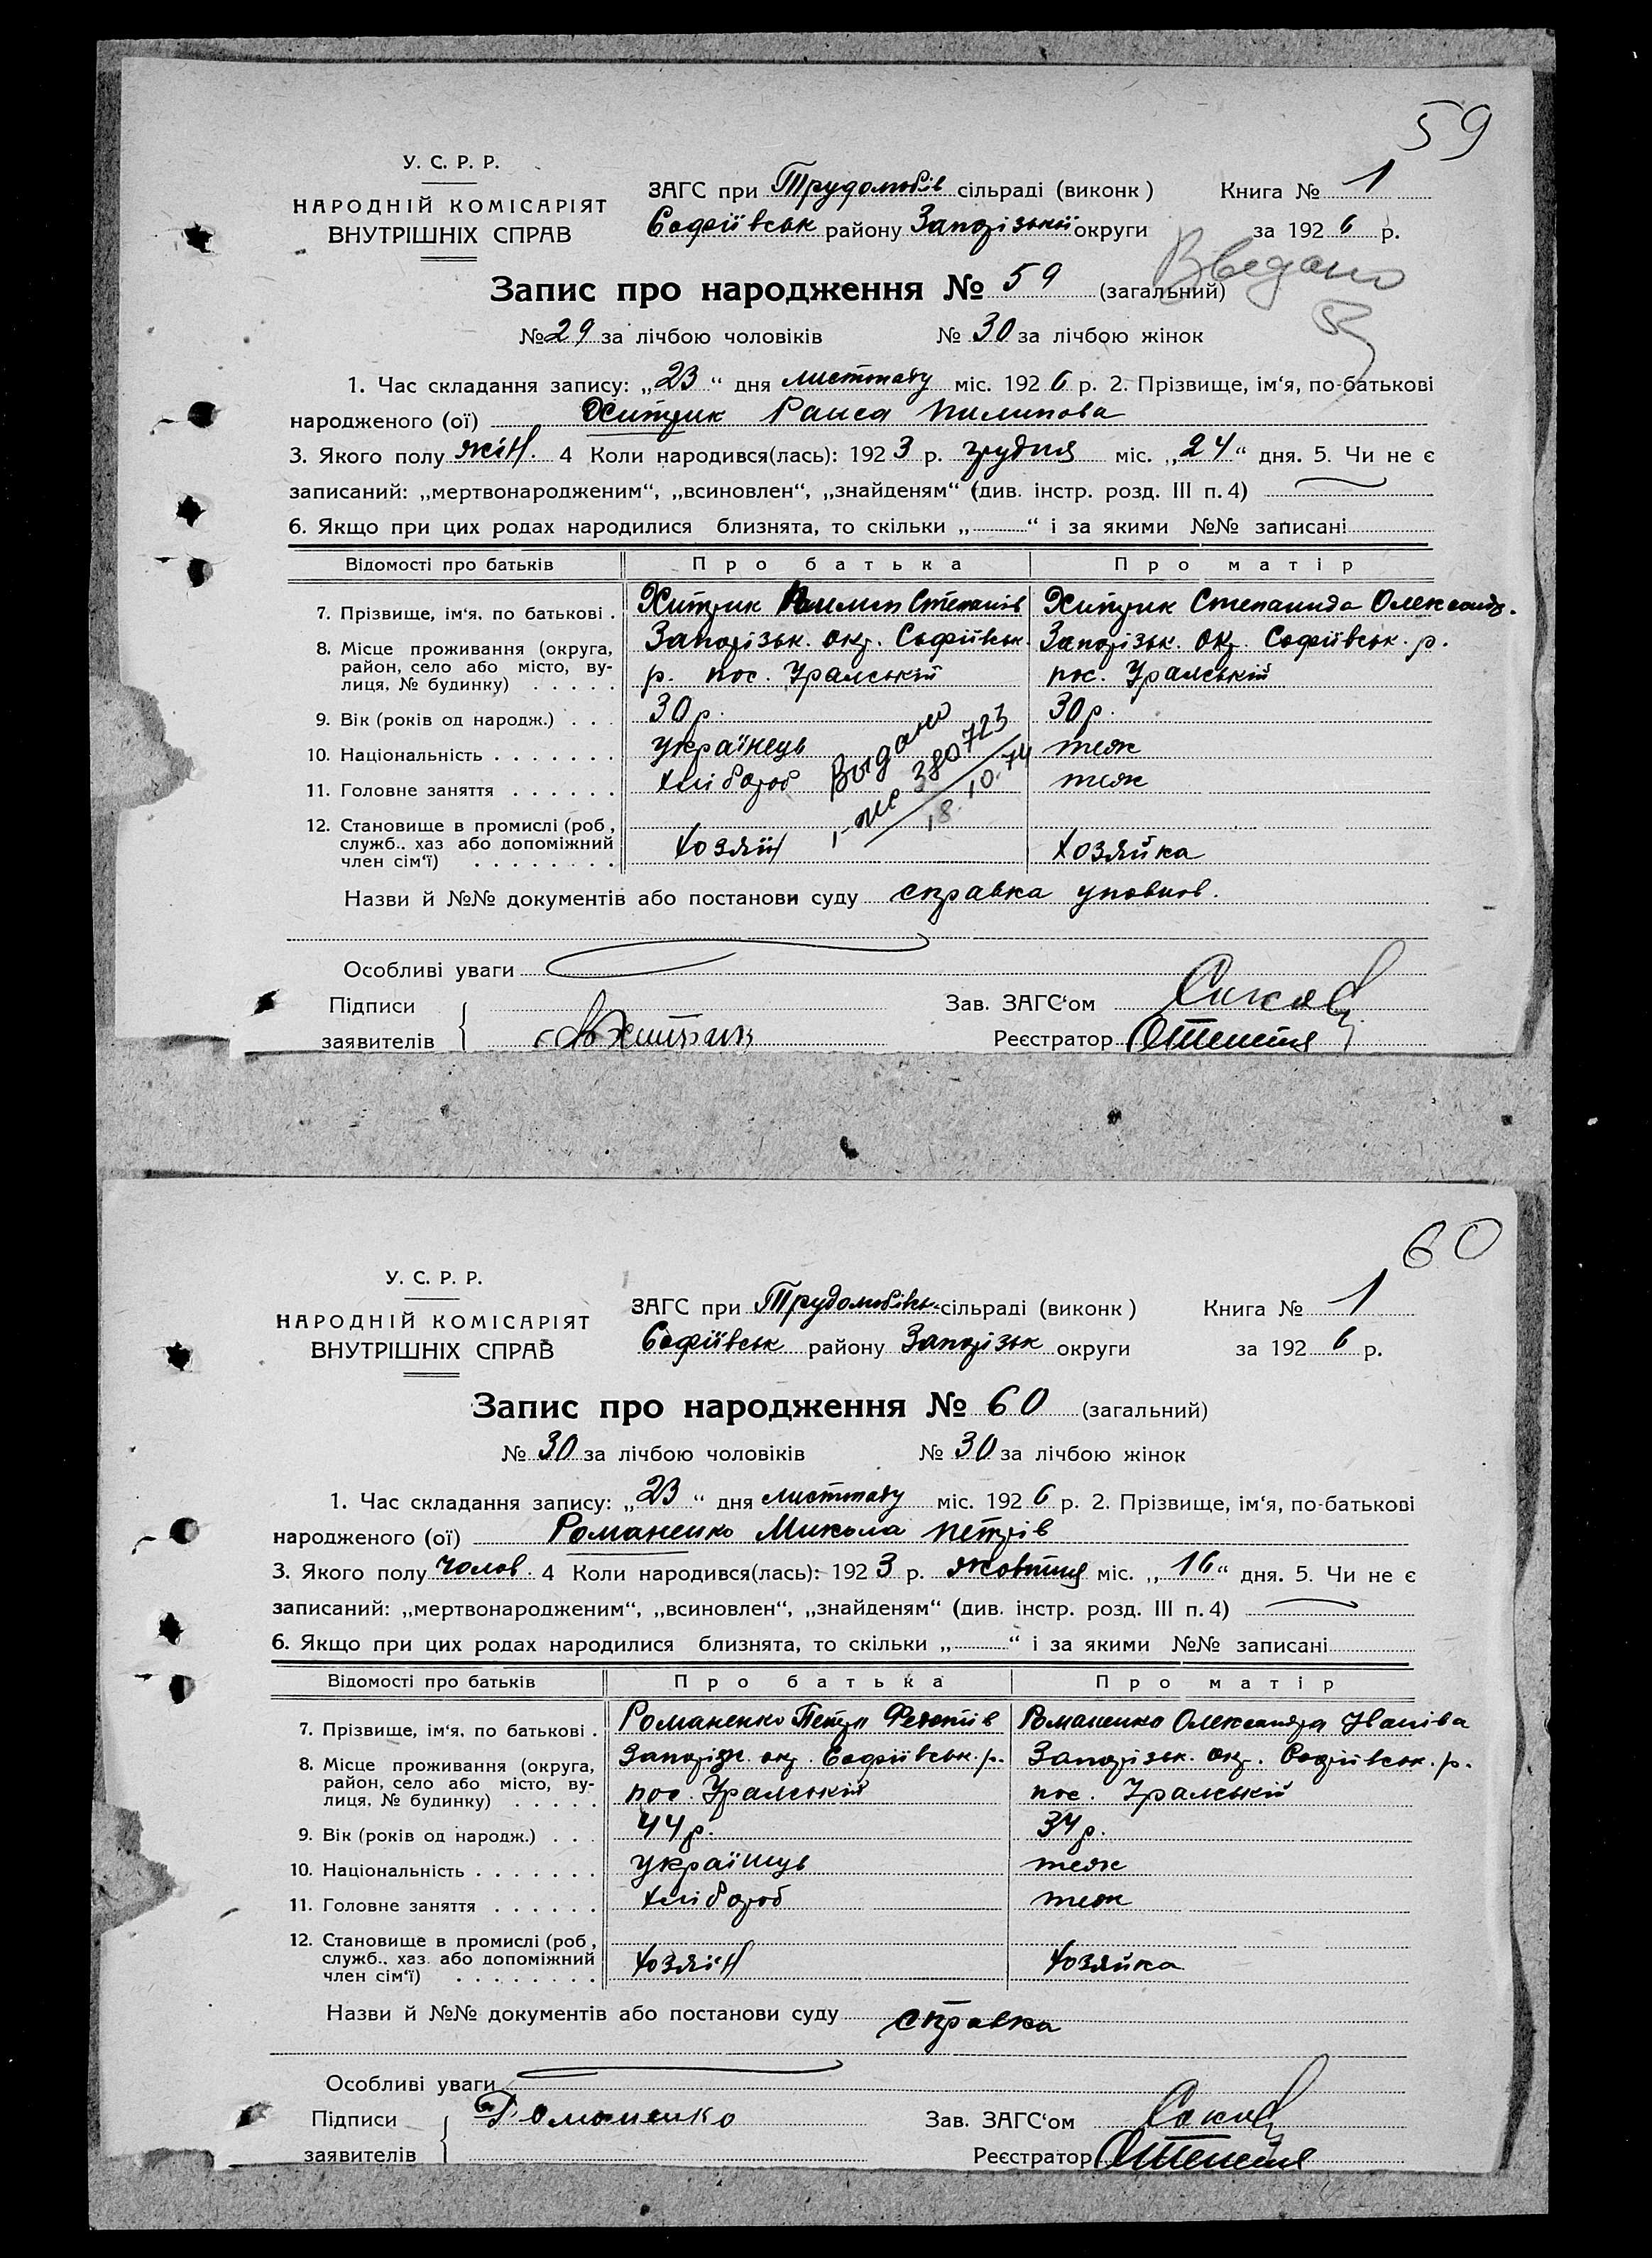 59
У. С. Р. Р.
НАРОДНІЙ КОМІСАРІЯТ
ВНУТРІШНІХ СПРАВ
ЗАГС при Трудолюбів сільраді (виконк) Книга № 1
Софіївськ району Запорізької округи за 1926 р.
Введано
Запис про народження № 59 (загальний)
№ 29 за лічбою чоловіків № 30 за лічбою жінок
1. Час складання запису: „23“ дня листопаду міс. 1926 р. 2. Прізвище, ім‘я, по-батькові
народженого (ої) Хитрик Раиса Пилипова
3. Якого полу жін. 4 Коли народився(лась): 1923 р. грудня міс. „24“ дня. 5. Чи не є
записаний: „мертвонародженим“, „всиновлен“, „знайденям“ (див. інстр. розд. III п. 4)
6. Якщо при цих родах народилися близнята, то скільки „ “ і за якими №№ записані
Відомості про батьків Про батька Про матір
7. Прізвище, ім‘я, по батькові . Хитрик Пилип Степанів Хитрик Степанида Олександр.
8. Місце проживання (округа, Запорізьк. окр. Софіївськ. Запорізьк. окр. Софіївськ. р.
район, село або місто, ву-
лиця, № будинку) . . . . . р. пос. Уральській пос. Уральській
9. Вік (років од народж.) . . . 30 р. 30 р.
10. Національність . . . . . . . українець теж
11. Головне заняття . . . . . . хлібороб теж
Выдано
380723
18.10.74
12. Становище в промислі (роб,
служб.. хаз або допоміжний
член сім‘ї) . . . . . . . . хозяїн хозяйка
Назви й №№ документів або постанови суду справка уповнов.
Особливі уваги
Підписи Зав. ЗАГС‘ом
заявителів Хитрик Реєстратор
60
У. С. Р. Р.
НАРОДНІЙ КОМІСАРІЯТ
ВНУТРІШНІХ СПРАВ
ЗАГС при Трудолюбівськ сільраді (виконк) Книга № 1
Софіївськ району Запорізьк округи за 1926 р.
Запис про народження № 60 (загальний)
№ 30 за лічбою чоловіків № 30 за лічбою жінок
1. Час складання запису: „23“ дня листопаду міс. 1926 р. 2. Прізвище, ім‘я, по-батькові
народженого (ої) Романенко Микола Петрів
3. Якого полу чолов. 4 Коли народився(лась): 1923 р. жовтня міс. „16“ дня. 5. Чи не є
записаний: „мертвонародженим“, „всиновлен“, „знайденям“ (див. інстр. розд. III п. 4)
6. Якщо при цих родах народилися близнята, то скільки „ “ і за якими №№ записані
Відомості про батьків Про батька Про матір
7. Прізвище, ім‘я, по батькові . Романенко Петро Романенко Олександра Іванівa
8. Місце проживання (округа, Запорізк. окр. Софіївськ. р. Запорізьк. окр. Софіївськ. р.
район, село або місто, ву-
лиця, № будинку) . . . . . пос. Уральській пос. Уральській
9. Вік (років од народж.) . . . 44 р. 34 р.
10. Національність . . . . . . . українць теж
11. Головне заняття . . . . . . хлібороб теж
12. Становище в промислі (роб,
служб.. хаз. або допоміжний
член сім‘ї) . . . . . . . . хозяїн хозяйка
Назви й №№ документів або постанови суду справка
Особливі уваги
Підписи Романенко Зав. ЗАГС‘ом
заявителів Реєстратор